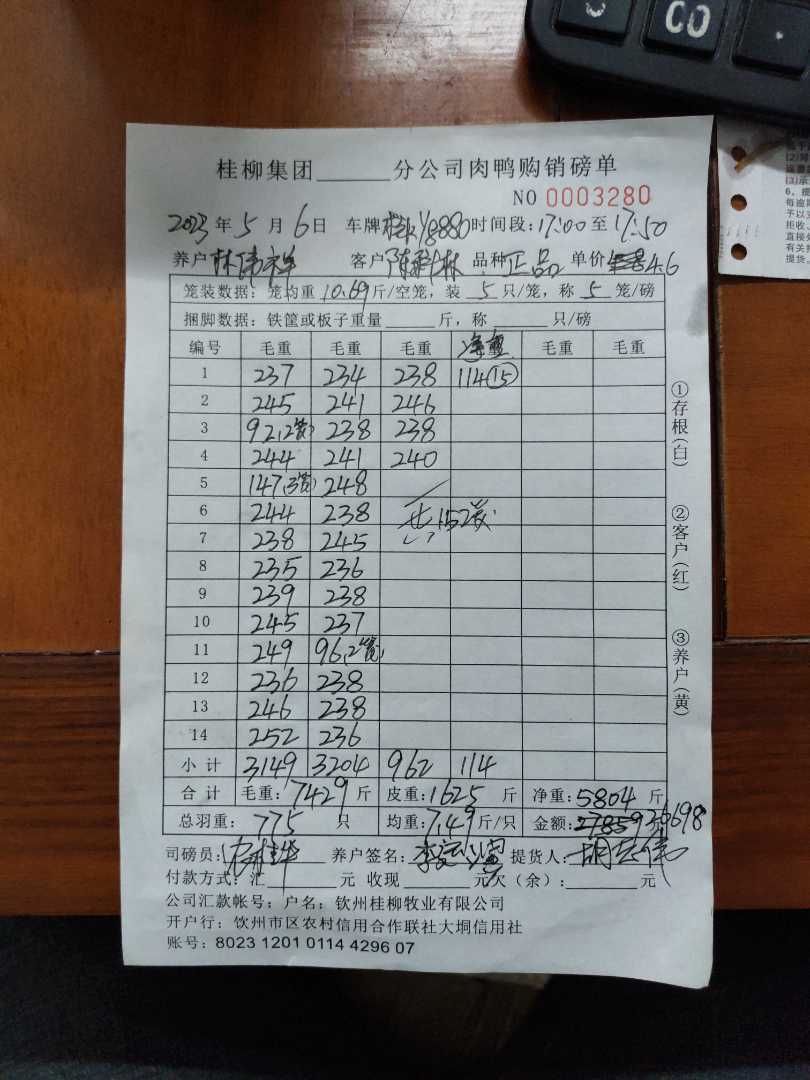 桂柳集团______分公司肉鸭购销磅单
NO 0003280
2023年5月6日 车牌 8880时间段:17:00至17:50
养户林伟祥 客户陈 林 品种正品 单价4.6
笼装数据:笼均重10.69斤/空笼,装5只/笼,称5笼/磅
捆脚数据:铁筐或板子重量______斤,称______只/磅
编号 毛重 毛重 毛重 净重 毛重 毛重
1 237 234 238 114(15)
2 245 241 246
3 92,2笼) 238 238
4 244 241 240
5 147,3笼) 248
6 244 238 共152笼
7 238 245
8 235 236
9 239 238
10 245 237
11 249 96,2笼)
12 236 238
13 246 238
14 252 236
小计 3149 3204 962 114
合计 毛重:7429斤 皮重:1625斤 净重:5804斤
总羽重:775只 均重:7.49斤/只 金额:27859元 26698
司磅员: 养户签名: 提货人:胡 伟
付款方式:汇______元 收现______元欠(余):______元
公司汇款帐号:户名:钦州桂柳牧业有限公司
开户行:钦州市区农村信用合作联社大垌信用社
账号:8023 1201 0114 4296 07
①存根(白)
②客户(红)
③养户(黄)